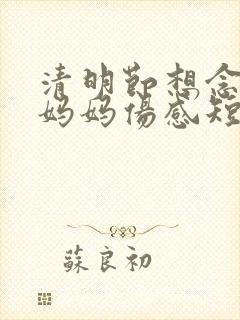 清明節想念
妈妈傷感短
蘇良初